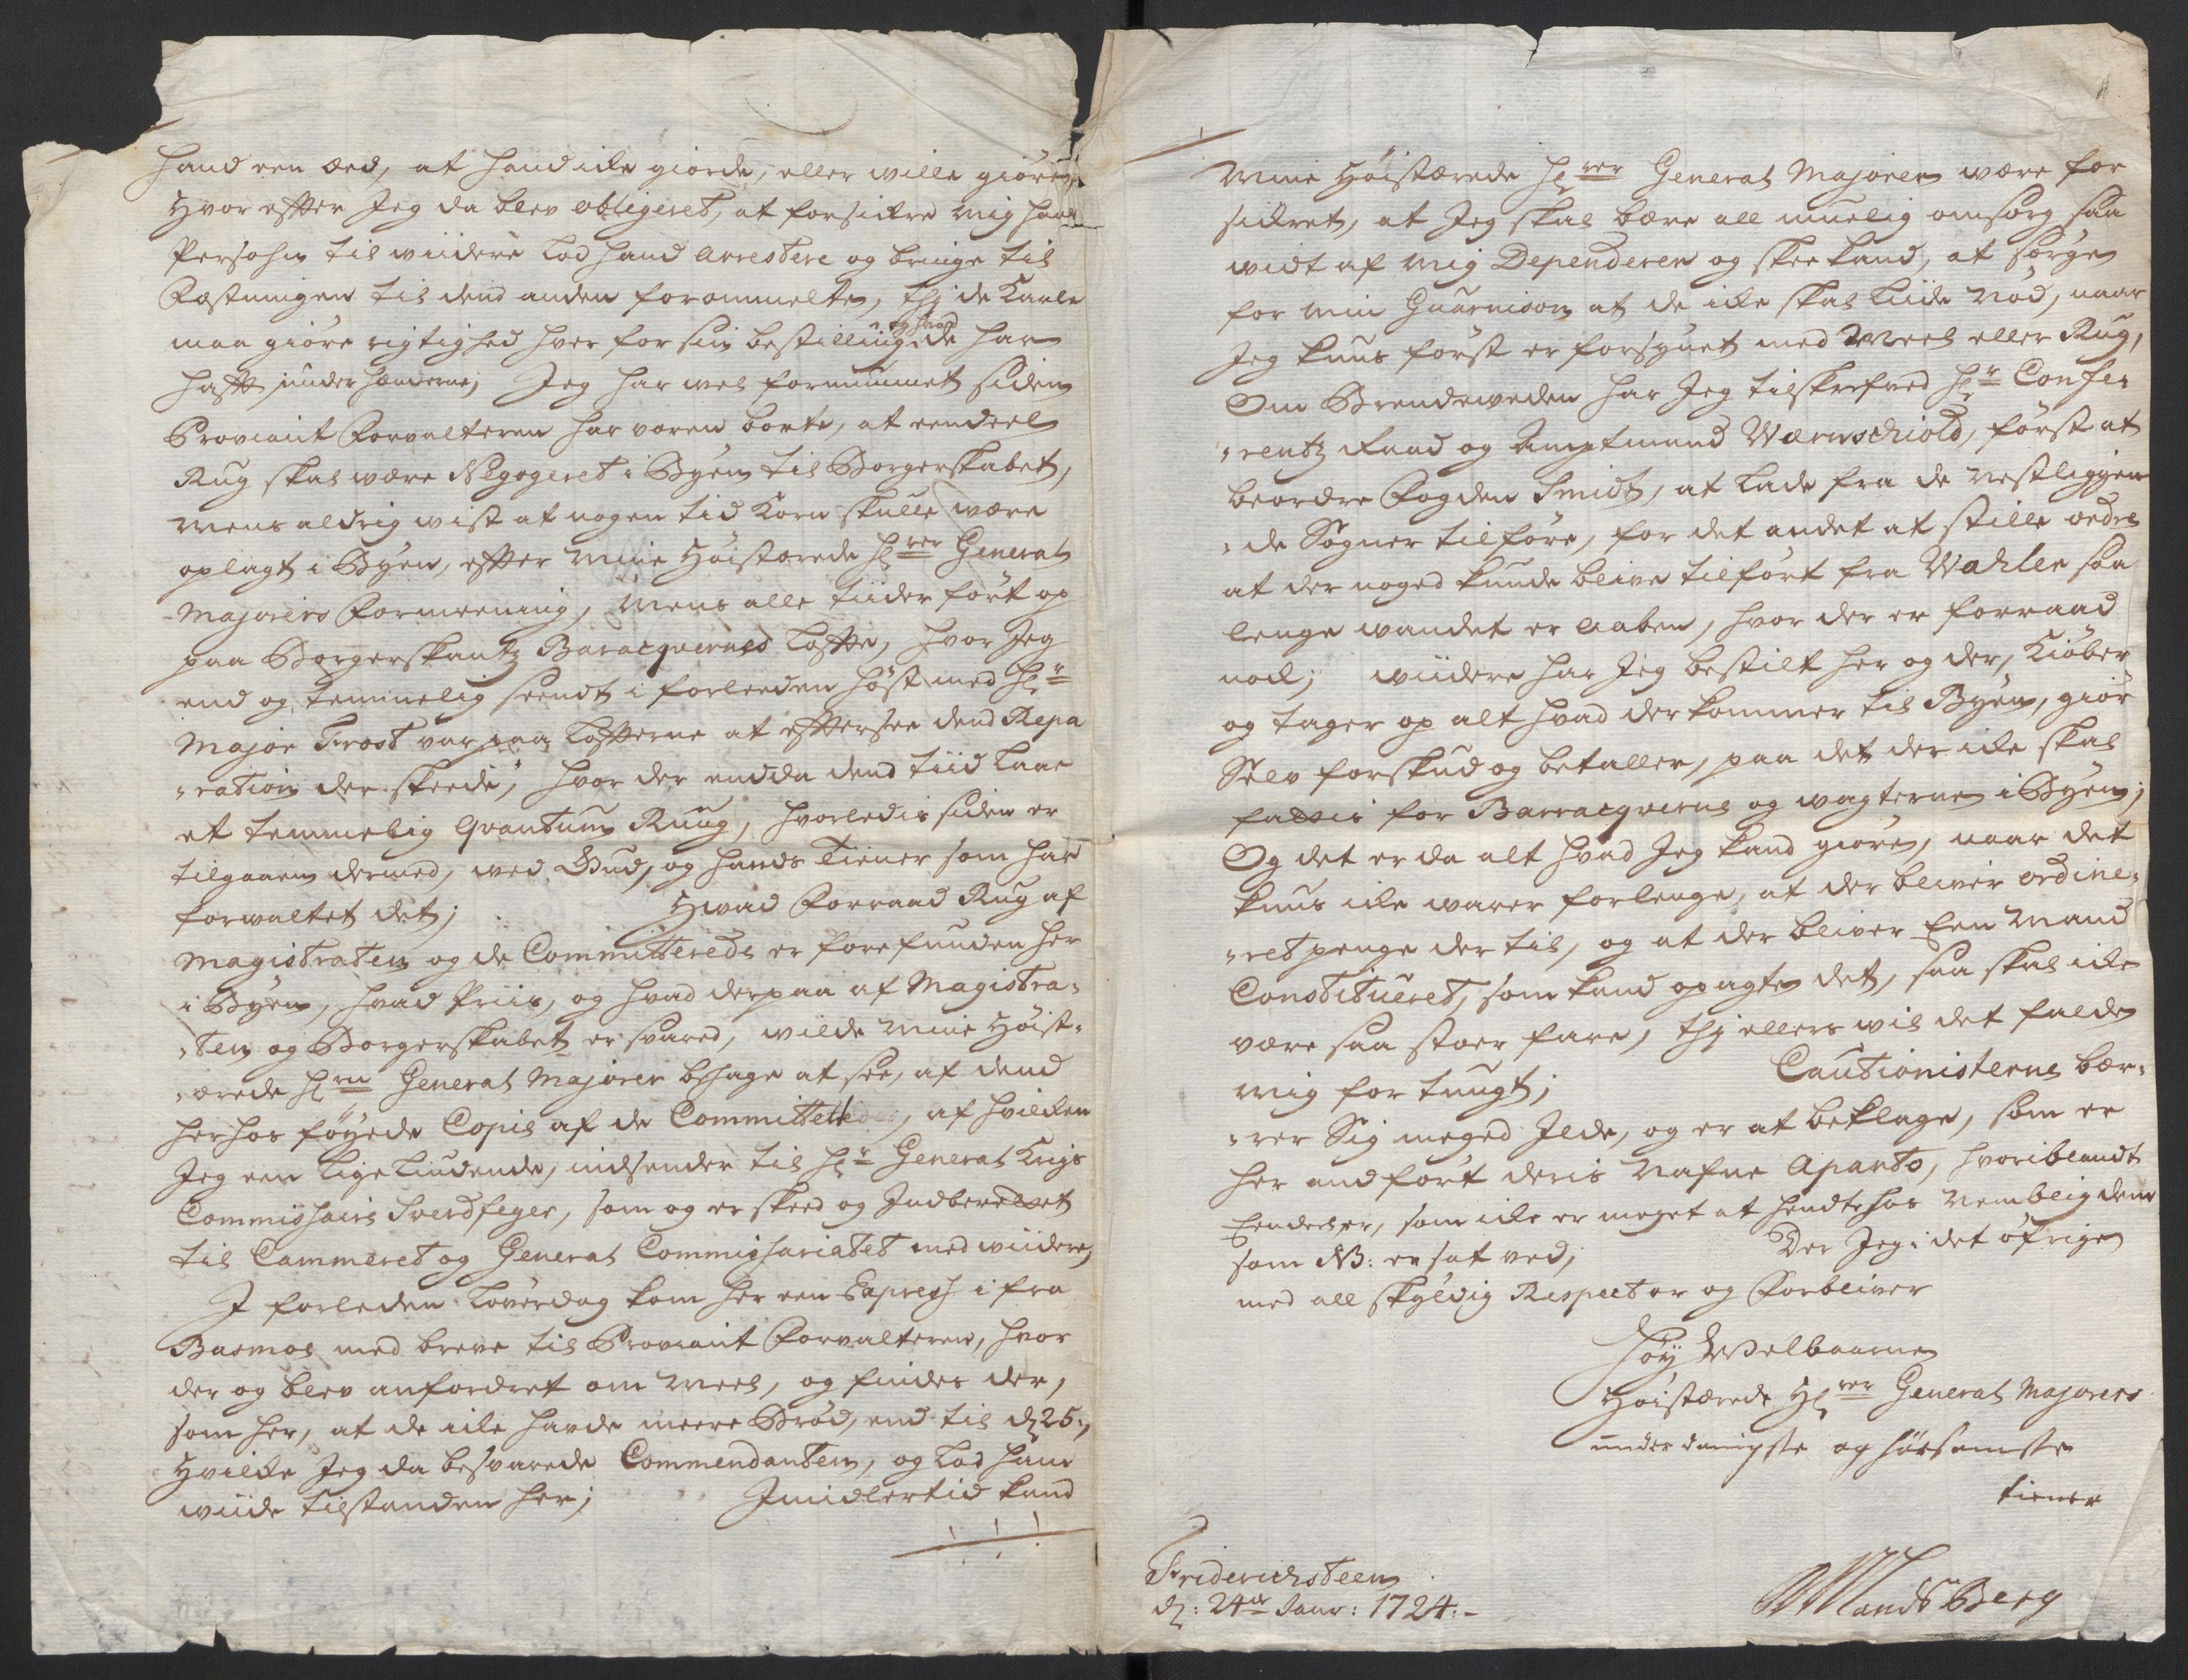 hand een oed, at hand icke giorde, eller wille giöre,
Hvor effter Jeg da blev obligeret, at forsickre mig hans
Persohn til wiidere lod hand arrestere og bringe til
Fæstningen til dend anden forommelte, thj de Karle
maa giöre rigtighed hver for sin bestilling og hvad de har
hafft under hænderne; Jeg har wel fornummet siden
Proviant Forvalteren har voren borte, at eendeel
Rug skal wære Negogeret i Byen til Borgerskabet,
mens aldrig wist at nogen tid Korn skulle wære
oplagt i Byen, effter Min Höistærede Hr General
Majorens Formeening, Mens alle tiider fört op
paa Borgerskantz Baracquernes loffte, hvor Jeg
end og temmelig seendt i forleeden höst med Hr
Major Frost var paa loffterne at effterse dend Repa
-ration der skeede, hvor der endda dend tiid laae
et temmelig Qvantum Ruug, hvorledis siden er
tilgaaen dermed, wed Gud, og hands Tiener som har
forwaltet det; Hvad Forraad Rug af
Magistraten og de Committerede er forefunden her
i Byen, hvad Priis, og hvad derpaa af Magistra-
-ten og Borgerskabet er svared, wilde Min Höist-
-ærede Hr General Majoren behage at see, af dend
herhos föyede Copie af de Committerede, af hvilken
Jeg een lige liudende, indsender til Hr General Krigs
Commissairs Sverdfeger, som og er skeed og Indberettet
til Cammeret og General Commissariatet med wiidere;
I forleden löverdag kom her een Express ifra
Basmos med breve til Proviant Forvalteren, hvor
der og blev anfordret om Meel, og findes der,
som her, at de icke havde meere Bröd, end til d 25:,
Hvilke Jeg da besvarede Commendanten, og lod ham
wiide tilstanden her; Imidlertid kand
Min Höistærede Hr General Majoren være for
sickret, at Jeg skal bære all muelig omsorg saa
widt af mig Dependerer og skee kand, at sörge
for min Guarnison at de icke skal liide Nöd, naar
Jeg kuns först er forsynet med Meel eller Rug,
Om Brendeweden har Jeg tilskrefved Hr Confe-
-rentz Raad og Amptmand Wærnschiold, först at
beordre Fogden Smidt, at lade fra de nestliggen
-de Sogner tilföre, for det andet at stille ordre
at der noged kunde blive tilfört fra Wahler saa
lenge wandet er aaben, hvor der er forraad
nock; wiidere har Jeg bestilt her og der, Kiöber
og tager op alt hvad der kommer til Byen, giör
Selv forskud og betaller, paa det der icke skal
fattis for Barracquerne og wagterne i Byen;
Og det er da alt hvad Jeg kand giöre, naar det
kuns icke warer forlenge, at der bliver ordine-
-ret penge der til, og at der bliver Een Mand
Constitueret, som kand opagte det, saa skal icke
være saa stoer fare, thj ellers wil det falde
mig for tungt; Cautionisterne bær-
-rer Sig meged Ilde, og er at beklage, som er
her andfört deris Nafne Aparto, hvoriblandt
Eendeel er, som icke er meget at hendte hos Nemblig dem
som NB: er sat ved; Der Jeg i det öfrige
med all skyldig Respect er og Forbliver
Höy Welbaarne
Höistærede Hr General Majorens
underdanigste og hörsomste
tiener
Friderichsteen
d: 24de Janr: 1724:-
Mands Berg